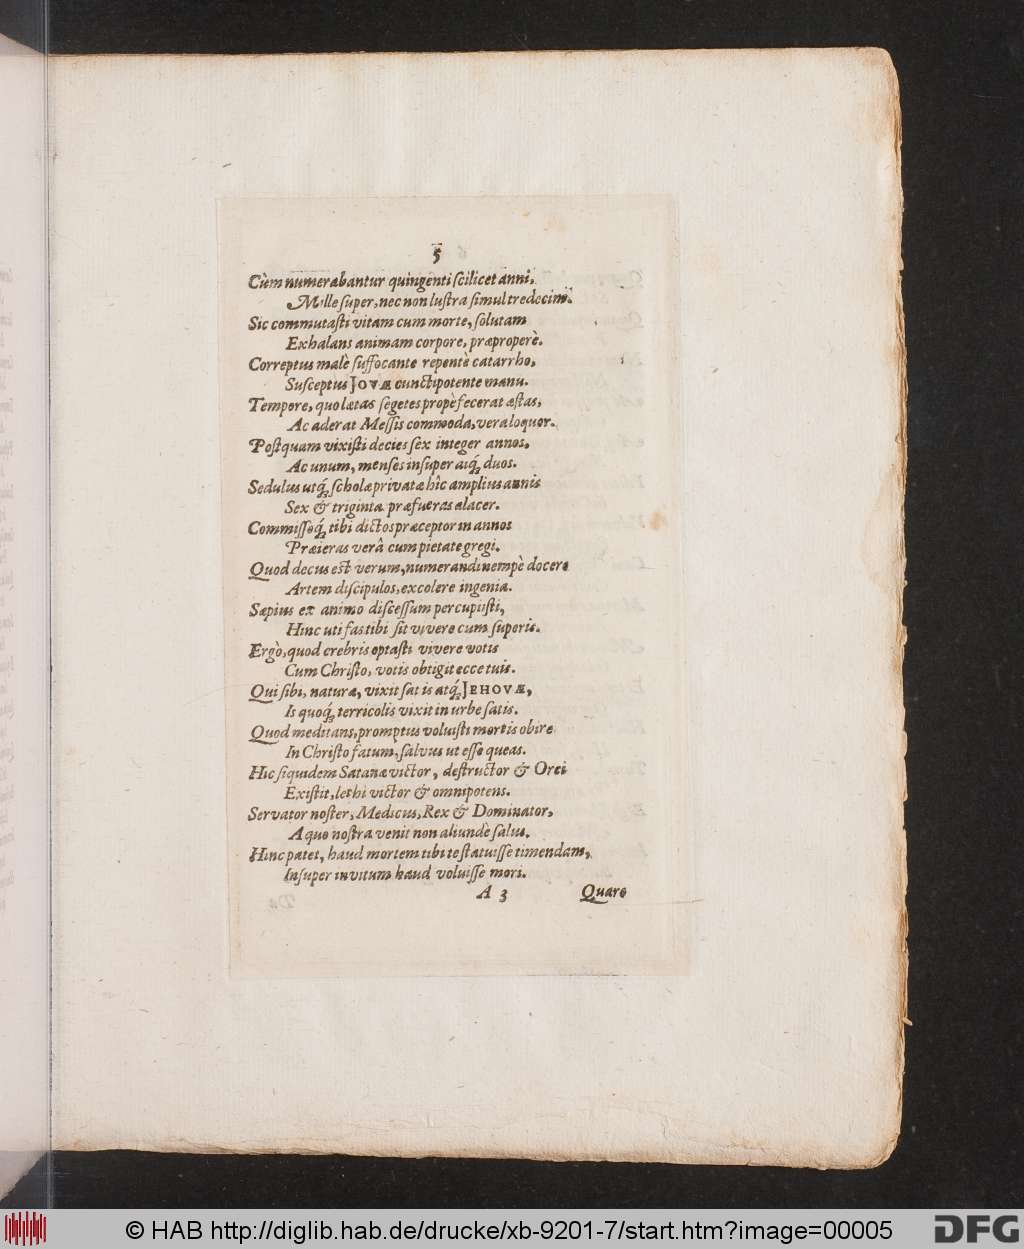 5
Cùm numerabantur quingenti scilicet anni,
Mille super, nec non lustra simul tredecim.
Sic commutasti vitam cum morte, solutam
Exhalans animam corpore, præproperè.
Correptus malè suffocante repentè catarrho,
Susceptus JOVÆ cunctipotente manu.
Tempore, quo lætas segetes propè fecerat æstas,
Ac aderat Messis commoda, vera loquor.
Postquam vixisti decies sex integer annos,
Ac unum, menses insuper atq́; duos.
Sedulus utq́; scholæ privatæ hîc amplius annis
Sex & triginta præfueras alacer.
Commissoq́; tibi dictos præceptor in annos
Præieras verâ cum pietate gregi.
Quod decus est verum, numerandi nempè docere
Artem discipulos, excolere ingenia.
Sæpius ex animo discessum percupiisti,
Hinc uti fas tibi sit vivere cum superis.
Ergò, quod crebris optasti vivere votis
Cum Christo, votis obtigit ecce tuis.
Qui sibi, naturæ, vixit satis atq́; JEHOVÆ,
Is quoq́; terricolis vixit in urbe satis.
Quod meditans, promptus voluisti mortis obire
In Christo fatum, salvus ut esse queas.
Hic siquidem Satanæ victor, destructor & Orci
Existit, lethi victor & omnipotens.
Servator noster, Medicus, Rex & Dominator,
A quo nostra venit non aliundè salus.
Hinc patet, haud mortem tibi te statuisse timendam,
Insuper invitum haud voluisse mori.
A 3 Quare
© HAB http://diglib.hab.de/drucke/xb-9201-7/start.htm?image=00005
DFG